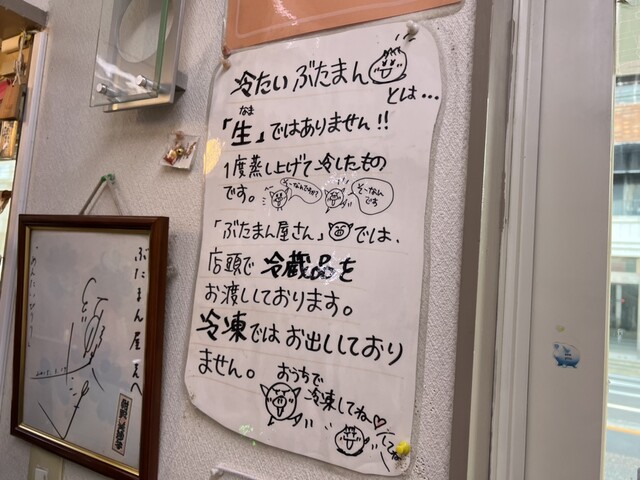 冷たい ぶたまん
とは…
なま
「生」ではありません!!
1度蒸し上げて冷したもの
です。
そーなんですか?
そーなん
です
「ぶたまん屋さん」では、
店頭で 冷蔵品を
お渡ししております。
冷凍では お出ししており
ません。
おうちで
冷凍してね♡
してね
ぶたまん屋さんへ